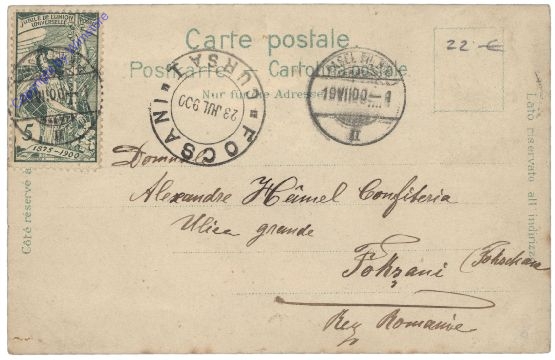 JUBILÉ DE L'UNION
UNIVERSELLE
5
1875-1900
Carte postale
Postkarte Cartolina postale
Nur für die Adresse
22-€
FOCSANI
CURSA I
23 JUL 900
BASEL
19 VII 00
II
Côté réservé à
Lato riservato all' indirizzo
Domnu
Alexandre Hümel Confiteria
Ulica grande
Fokşani (Fokschani
Reg Romanie